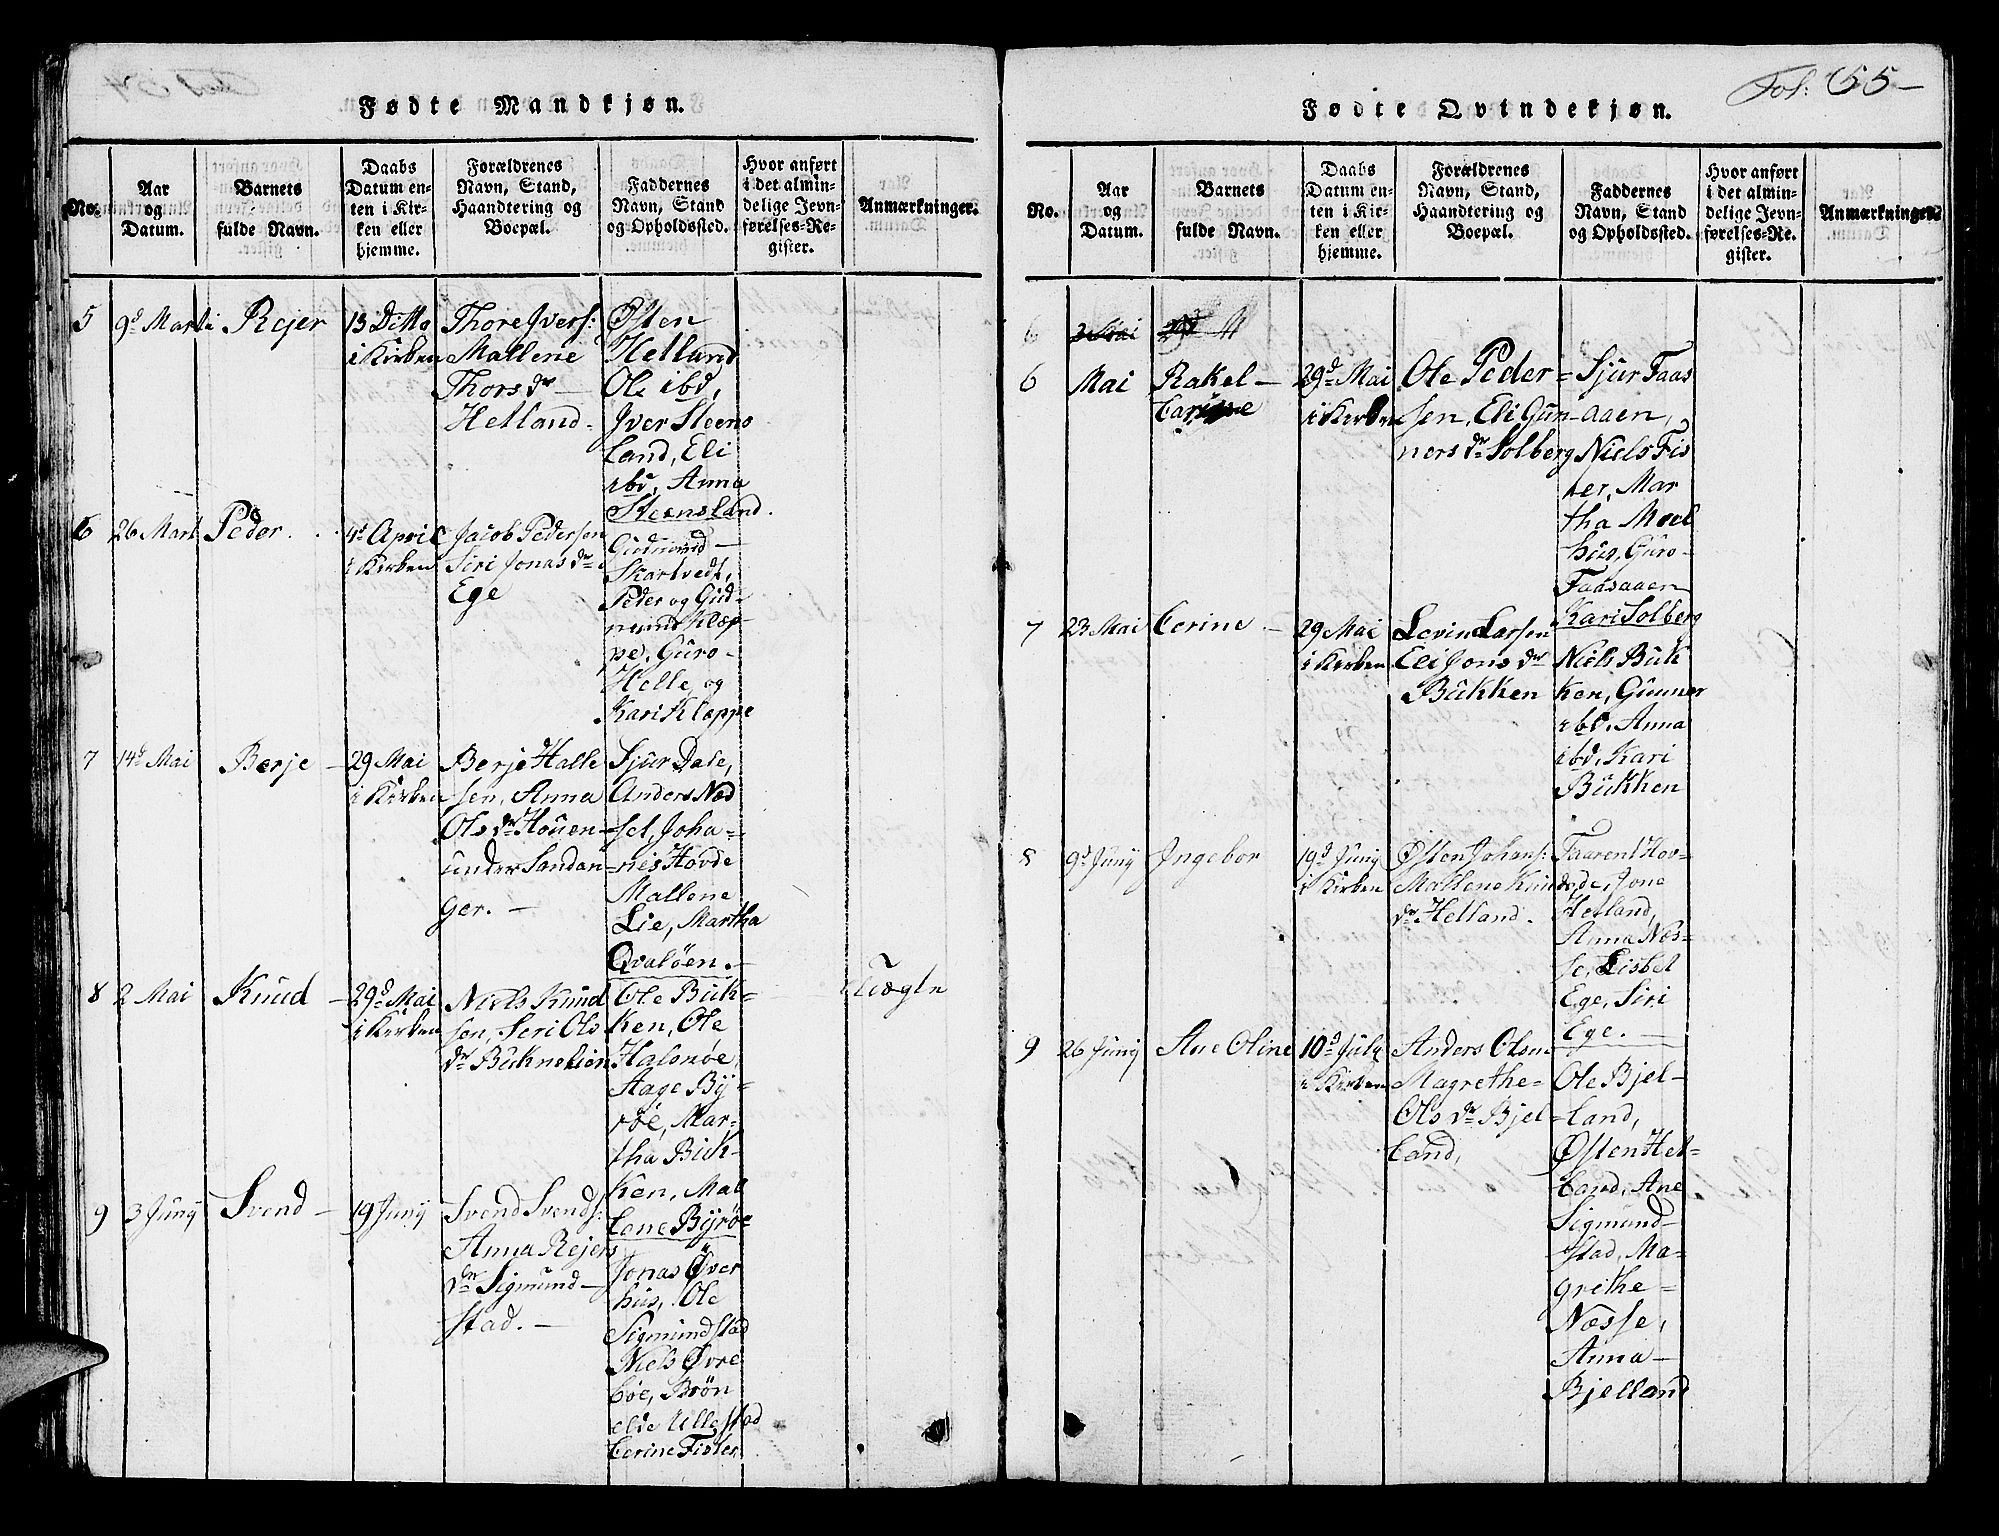 Fødte Mandkjøn.
No.
Aar
og
Datum.
Barnets
fulde Navn.
Daabs
Datum en-
ten i Kir-
ken eller
hjemme.
Forældrenes
Navn, Stand,
Haandtering og
Boepæl.
Faddernes
Navn, Stand
og Opholdssted.
Hvor anført
i det almin-
delige Jevn-
førelses-Re-
gister.
Anmærkninger.
5
9d Marti
Rejer
13 Ditto
i Kirken
Thore Ivers:
Mallene
Thors dr
Helland.
Østen
Helland
Ole ibd,
Iver Steens
land, Eli
ibd, Anna
Steensland.
6
26 Mart
Peder.
4d April
i Kirken
Jacob Pedersen
Siri Jonas dr
Ege
Gudmund
Skartvedt,
Peder og Gud-
mund Klæp-
pe, Guro
Helle, og
Kari Klæppe
7
14d Mai
Berje
29 Mai
i Kirken
Berje Halle
sen, Anna
Ols dr Houen
under Sandan
ger.
Sjur Dale,
Anders Nød
set, Joha-
nis Hovde
Mallene
Lie, Martha
Qvaløen.
8
2 Mai
Knud
29d Mai
i Kirken
Niels Knud
sen, Seri Ols
dr Buknelien
Ole Buk-
ken, Ole
Halsnøe,
Aage Byr-
røe, Mar-
tha Buk-
ken, Mal
lene Byrøe
Uægte
9
3 Junij
Svend
19 Junij
Svend Svends:
Anna Rejers
dr Sigmund-
stad.
Jonas Øver
hus, Ole
Sigmundstad
Niels Øvre
bøe, Brøn
elde Ullestad
Cerine Fister
Fol: 55
Fødte Qvindekjøn.
No.
Aar
og
Datum.
Barnets
fulde Navn.
Daabs
Datum en-
ten i Kir-
ken eller
hjemme.
Forældrenes
Navn, Stand,
Haandtering og
Boepæl.
Faddernes
Navn, Stand
og Opholdssted.
Hvor anført
i det almin-
delige Jevn-
førelses-Re-
gister.
Anmærkninger.
6
6
Mai
Rakel
Carine
29d Mai
i Kirken
Ole Peder-
sen, Eli Gun-
ners dr Solberg
Sjur Faas
aaen,
Niels Fis
ter, Mar
tha Moel
hus, Guro
Faasaaen
Kari Solberg
7
23 Mai
Cerine
29 Mai
i Kirken
Levin Larsen
Eli Jons dr
Bukken
Niels Buk
ken, Gunner
ibd, Anna
ibd, Kari
Bukken
8
9d Junij
Ingebor
19d Junij
i Kirken
Østen Johans:
Mallene Knuds
dr Helland.
Taarent Hov-
de, Jone
Helland,
Anna Næs-
se, Lisbet
Ege, Siri
Ege.
9
26 Junij
Ane Oline
10d July
i Kirken
Anders Olsen
Magrethe
Ols dr Bjel-
land,
Ole Bjel-
land,
Østen Hel-
land, Ane
Sigmund-
stad, Ma-
grethe
Næsse,
Anna
Bjelland